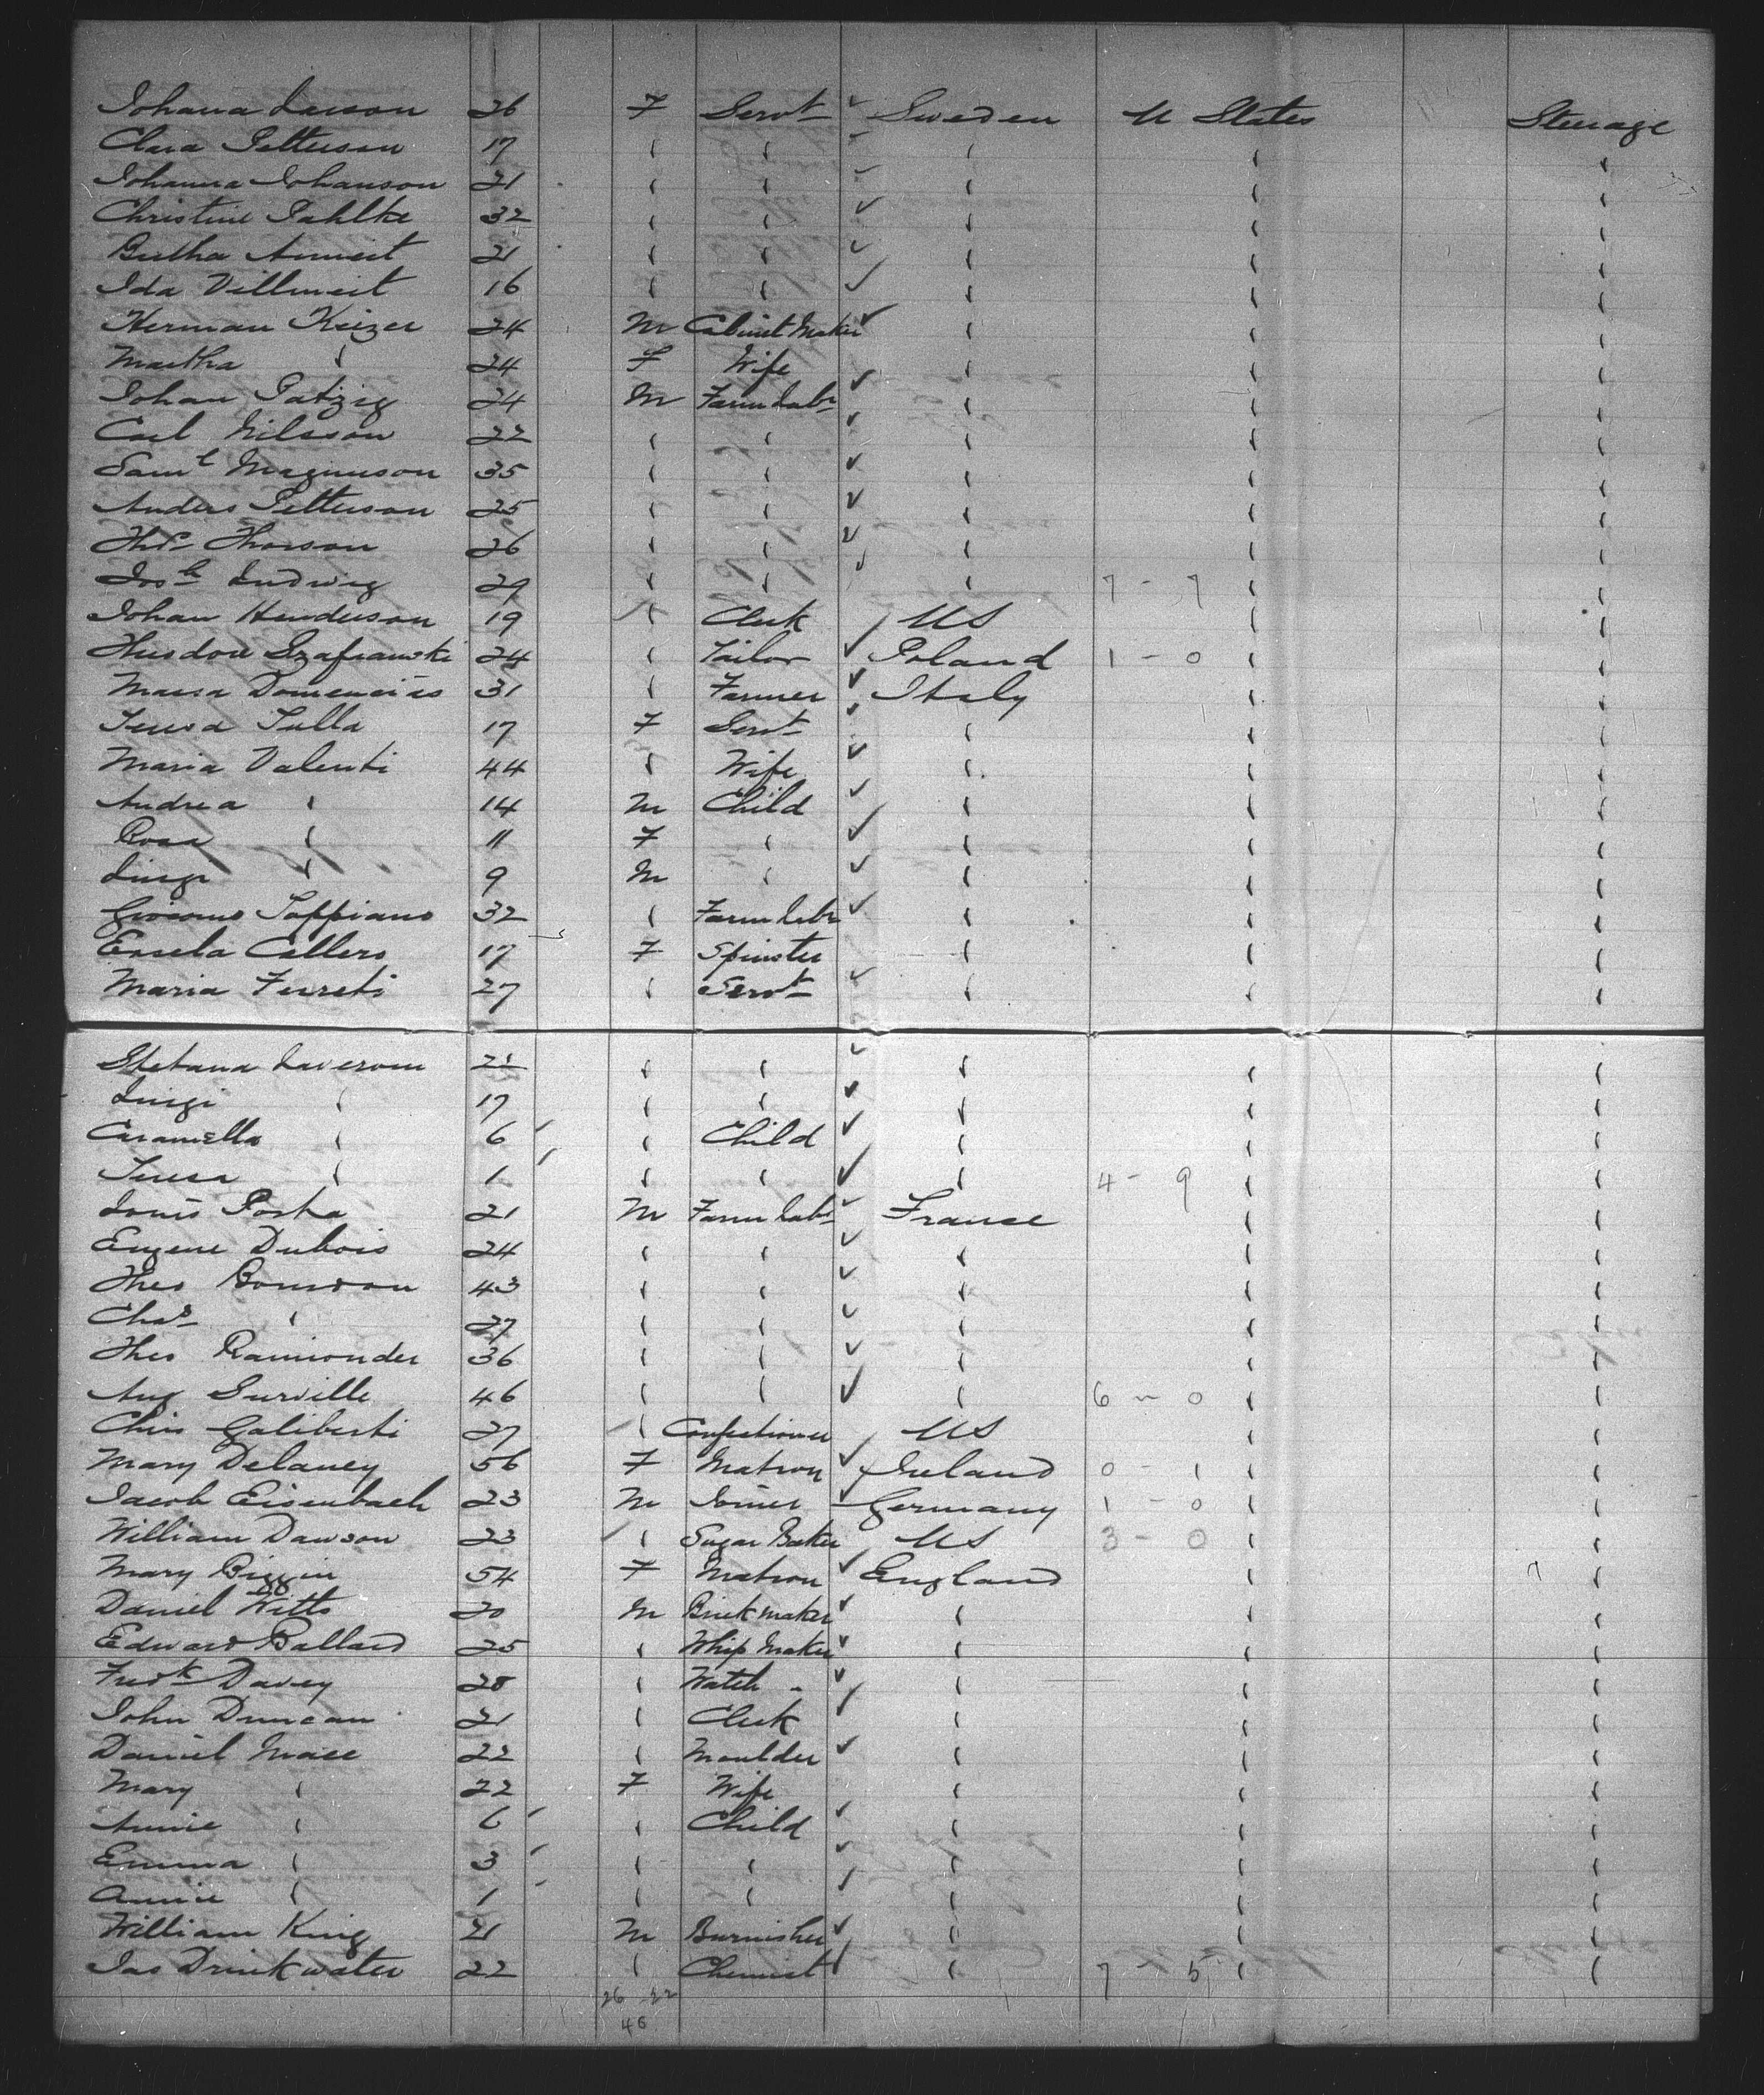 Johana Larson 26 F Servt Sweden U States Steerage
Clara Petterson 17 " " " " "
Johanna Johanson 21 " " " " "
Christine Pahlke 32 " " " " "
Bertha 21 " " " " "
Ida Villmeit 16 " " " " "
Herman Keizer 24 M Cabinet Maker " " "
Martha " 24 F Wife " " "
Johan Patzig 24 M Farm Labr " " "
Carl Nilsson 22 " " " " "
Saml Magnuson 35 " " " " "
Anders Petterson 25 " " " " "
Thos Thorson 26 " " " " "
Josh Ludwig 29 " " " 7 - 7 " "
Johan Henderson 19 " Clerk US " "
Szafrawski 24 " Tailor Poland 1 - 0 " "
Massa 31 " Farmer Italy " "
Teresa Tulla 17 F Servt " " "
Maria Valenti 44 " Wife " " "
Andrea " 14 M Child " " "
Rosa " 11 F " " " "
Luigi " 9 M " " " "
Giocomo Soffiano 32 " Farm Labr " " "
Cellers 17 F Spinster " " "
Maria Ferreti 27 " Servt " " "
Laverom " " " " "
Luigi " 17 " " " " "
Caramella " 6 " Child " " "
Teresa " 1 " " " 4 - 9 " "
Louis Posta 21 M Farm Labr France " "
Eugene Dubois 24 " " " " "
Theo Bourdon 43 " " " " "
Chas " 27 " " " " "
Theo Ramionder 36 " " " " "
Aug Surville 46 " " " 6 - 0 " "
Chris Galiberti 27 " Confectioner US " "
Mary Delaney 56 F Matron Ireland 0 - 1 " "
Jacob Eisenbach 23 M Joiner Germany 1 - 0 " "
William Dawson 23 " Sugar Baker US 3 - 0 " "
Mary Biggin 54 F Matron England " "
Daniel Witts 20 M Brickmaker " " "
Edward Ballard 25 " Whip Maker " " "
Fredk Davey 28 " Watch " " " "
John Duncan 21 " Clerk " " "
Daniel Mace 22 " Moulder " " "
Mary " 22 F Wife " " "
Annie " 6 " Child " " "
Emma " 3 " " " " "
Annie " 1 " " " " "
William King 21 M Burnisher " " "
Jas Drinkwater 22 " Chemist " 7 - 5 " "
26 - 22
48